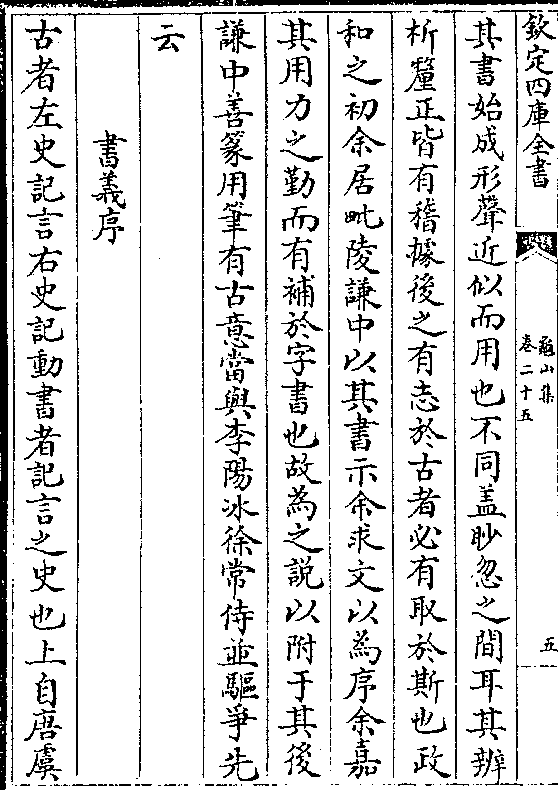 欽定四庫全書
龜山集
卷二十五
五
其書始成形聲近似而用也不同盖眇忽之間耳其辨
析釐正皆有稽據後之有志於古者必有取於斯也政
和之初余居毗陵謙中以其書示余求文以為序余嘉
其用力之勤而有補於字書也故為之説以附于其後
謙中善篆用筆有古意當與李陽冰徐常侍並驅爭先
云
書義序
古者左史記言右史記動書者記言之史也上自唐虞